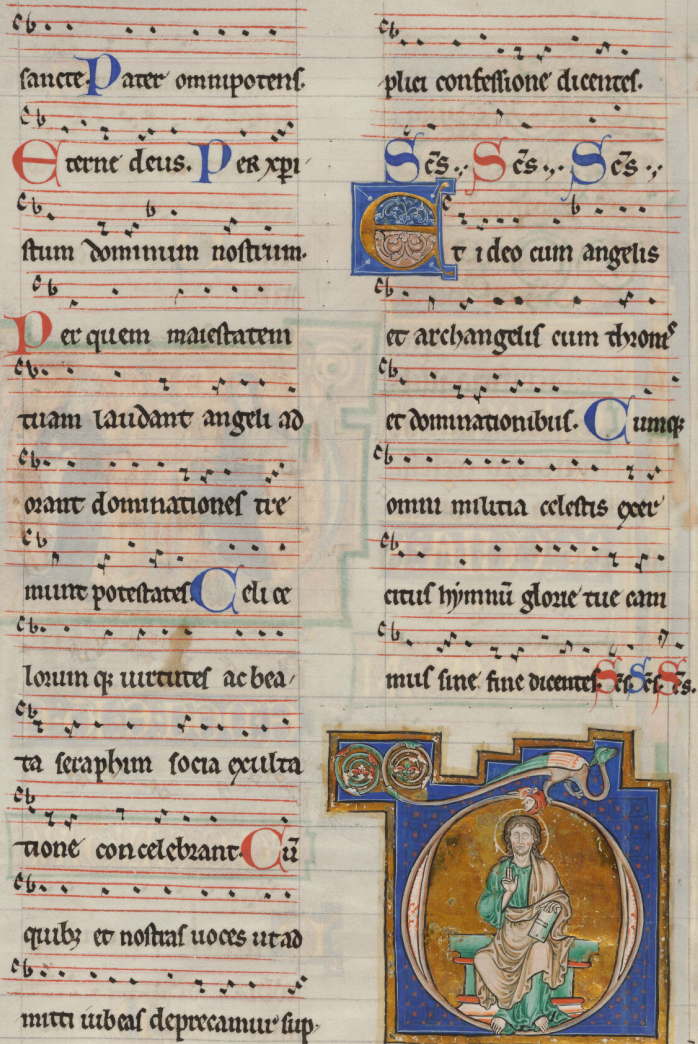 sancte Pater omnipotens.
Eterne deus. Per xpi
stum dominum nostrum.
Per quem maiestatem
tuam laudant angeli ad
orant dominationes tre
munt potestates. Celi ce
lorum q; uirtutes ac bea/
ta seraphim socia exulta
tione concelebrant. Cū
quibꝫ et nostras uoces ut ad
mitti iubeas deprecamur sup/
plici confessione dicentes.
Sc̄s . Sc̄s . Sc̄s .
Et ideo cum angelis
et archangelis cum thronis
et dominationibus. Cumq;
omni militia celestis exer
citus hymnū glorie tue cani
mus sine fine dicentes. Sc̄s. Sc̄s. Sc̄s.